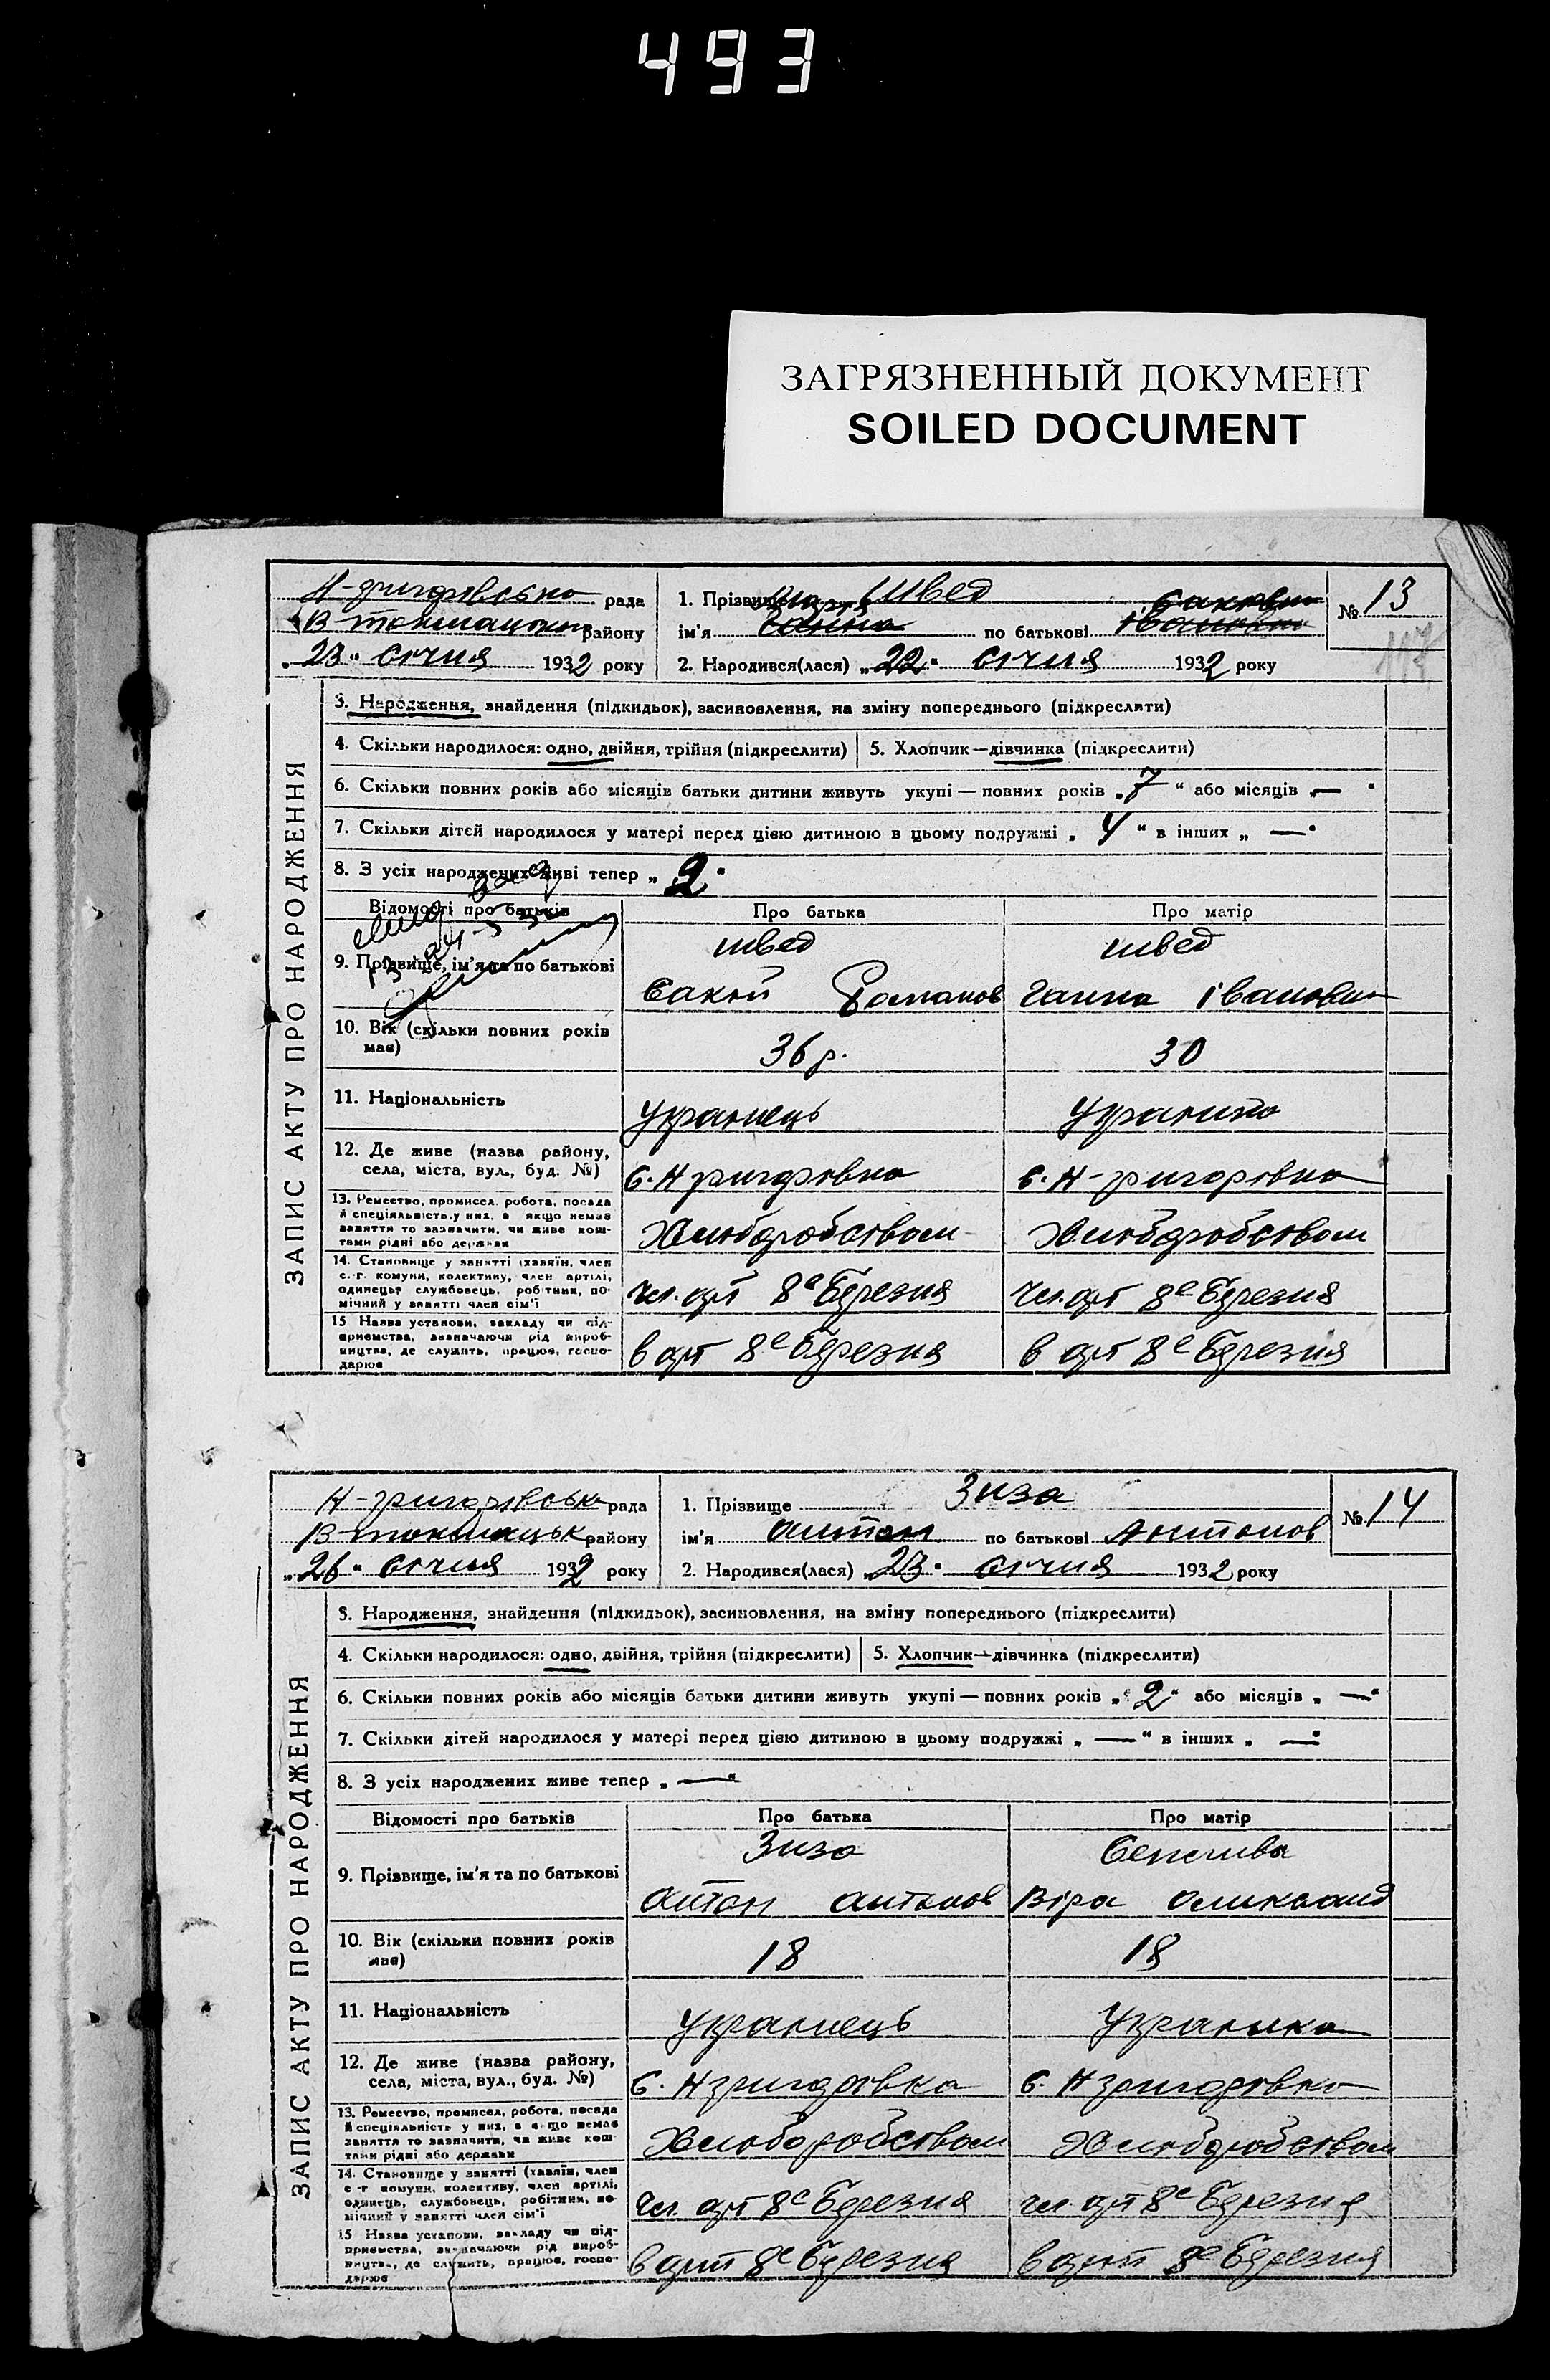 493
ЗАГРЯЗНЕННЫЙ ДОКУМЕНТ
SOILED DOCUMENT
Н-григорівсько рада
В-токмацьком району
„23“ січня 1932 року
1. Прізвище Швед
ім'я Ганна по батькові Іванівна
2. Народився(лася) „22“ січня 1932 року
№ 13
117
ЗАПИС АКТУ ПРО НАРОДЖЕННЯ
3. Народження, знайдення (підкидьок), засиновлення, на зміну попереднього (підкреслити)
4. Скільки народилося: одно, двійня, трійня (підкреслити) 5. Хлопчик—дівчинка (підкреслити)
6. Скільки повних років або місяців батьки дитини живуть укупі — повних років „7“ або місяців „—“
7. Скільки дітей народилося у матері перед цією дитиною в цьому подружжі „4“ в інших „—“
8. З усіх народжених живі тепер „2“
Відомості про батьків Про батька Про матір
9. Прізвище, ім'я та по батькові
швед швед
Сакон Романов Ганна Івановна
10. Вік (скільки повних років має) 36 р. 30
11. Національність Украінець Украінка
12. Де живе (назва району, села, міста, вул., буд. №) С. Н григоровка С. Н-григоровка
13. Ремество, промисел, робота, посада й спеціяльність у них, а якщо немає заняття то зазначити, чи живе коштами рідні або держави
Хлиобробством Хлиобробством
14. Становище у занятті (хазяїн, член с.-г. комуни, колективу, член артілі, одинець, службовець, робітник, помічний у занятті член сім'ї
Чл. арт 8е Березня Чл. арт 8е Березня
15 Назва установи, закладу чи підприємства, зазначаючи рід виробництва, де служить, працює, господарює
в арт 8е Березня в арт 8е Березня
Н-григорівсько рада
В-токмацьк району
„26“ січня 1932 року
1. Прізвище Зиза
ім'я Антон по батькові Антонов
2. Народився(лася) „23“ січня 1932 року
№ 14
ЗАПИС АКТУ ПРО НАРОДЖЕННЯ
3. Народження, знайдення (підкидьок), засиновлення, на зміну попереднього (підкреслити)
4. Скільки народилося: одно, двійня, трійня (підкреслити) 5. Хлопчик—дівчинка (підкреслити)
6. Скільки повних років або місяців батьки дитини живуть укупі — повних років „2“ або місяців „—“
7. Скільки дітей народилося у матері перед цією дитиною в цьому подружжі „—“ в інших „—“
8. З усіх народжених живе тепер „—“
Відомості про батьків Про батька Про матір
9. Прізвище, ім'я та по батькові
Зиза
Антон Антонов Віра Олександ
10. Вік (скільки повних років має) 18 18
11. Національність Украінець Украінка
12. Де живе (назва району, села, міста, вул., буд. №) С. Н григоровка С. Н григоровка
13. Ремество, промисел, робота, посада й спеціяльність у них, а якщо немає заняття то зазначити, чи живе коштами рідні або держави
Хлиобробством Хлиобробством
14. Становище у занятті (хазяїн, член с-г комуни, колективу, член артілі, одинець, службовець, робітник, помічний у занятті член сім'ї
Чл. арт 8е Березня чл. арт 8е Березня
15 Назва установи, закладу чи підприємства, зазначаючи рід виробництва, де служить, працює, господарює
в арт 8е Березня в арт 8е Березня